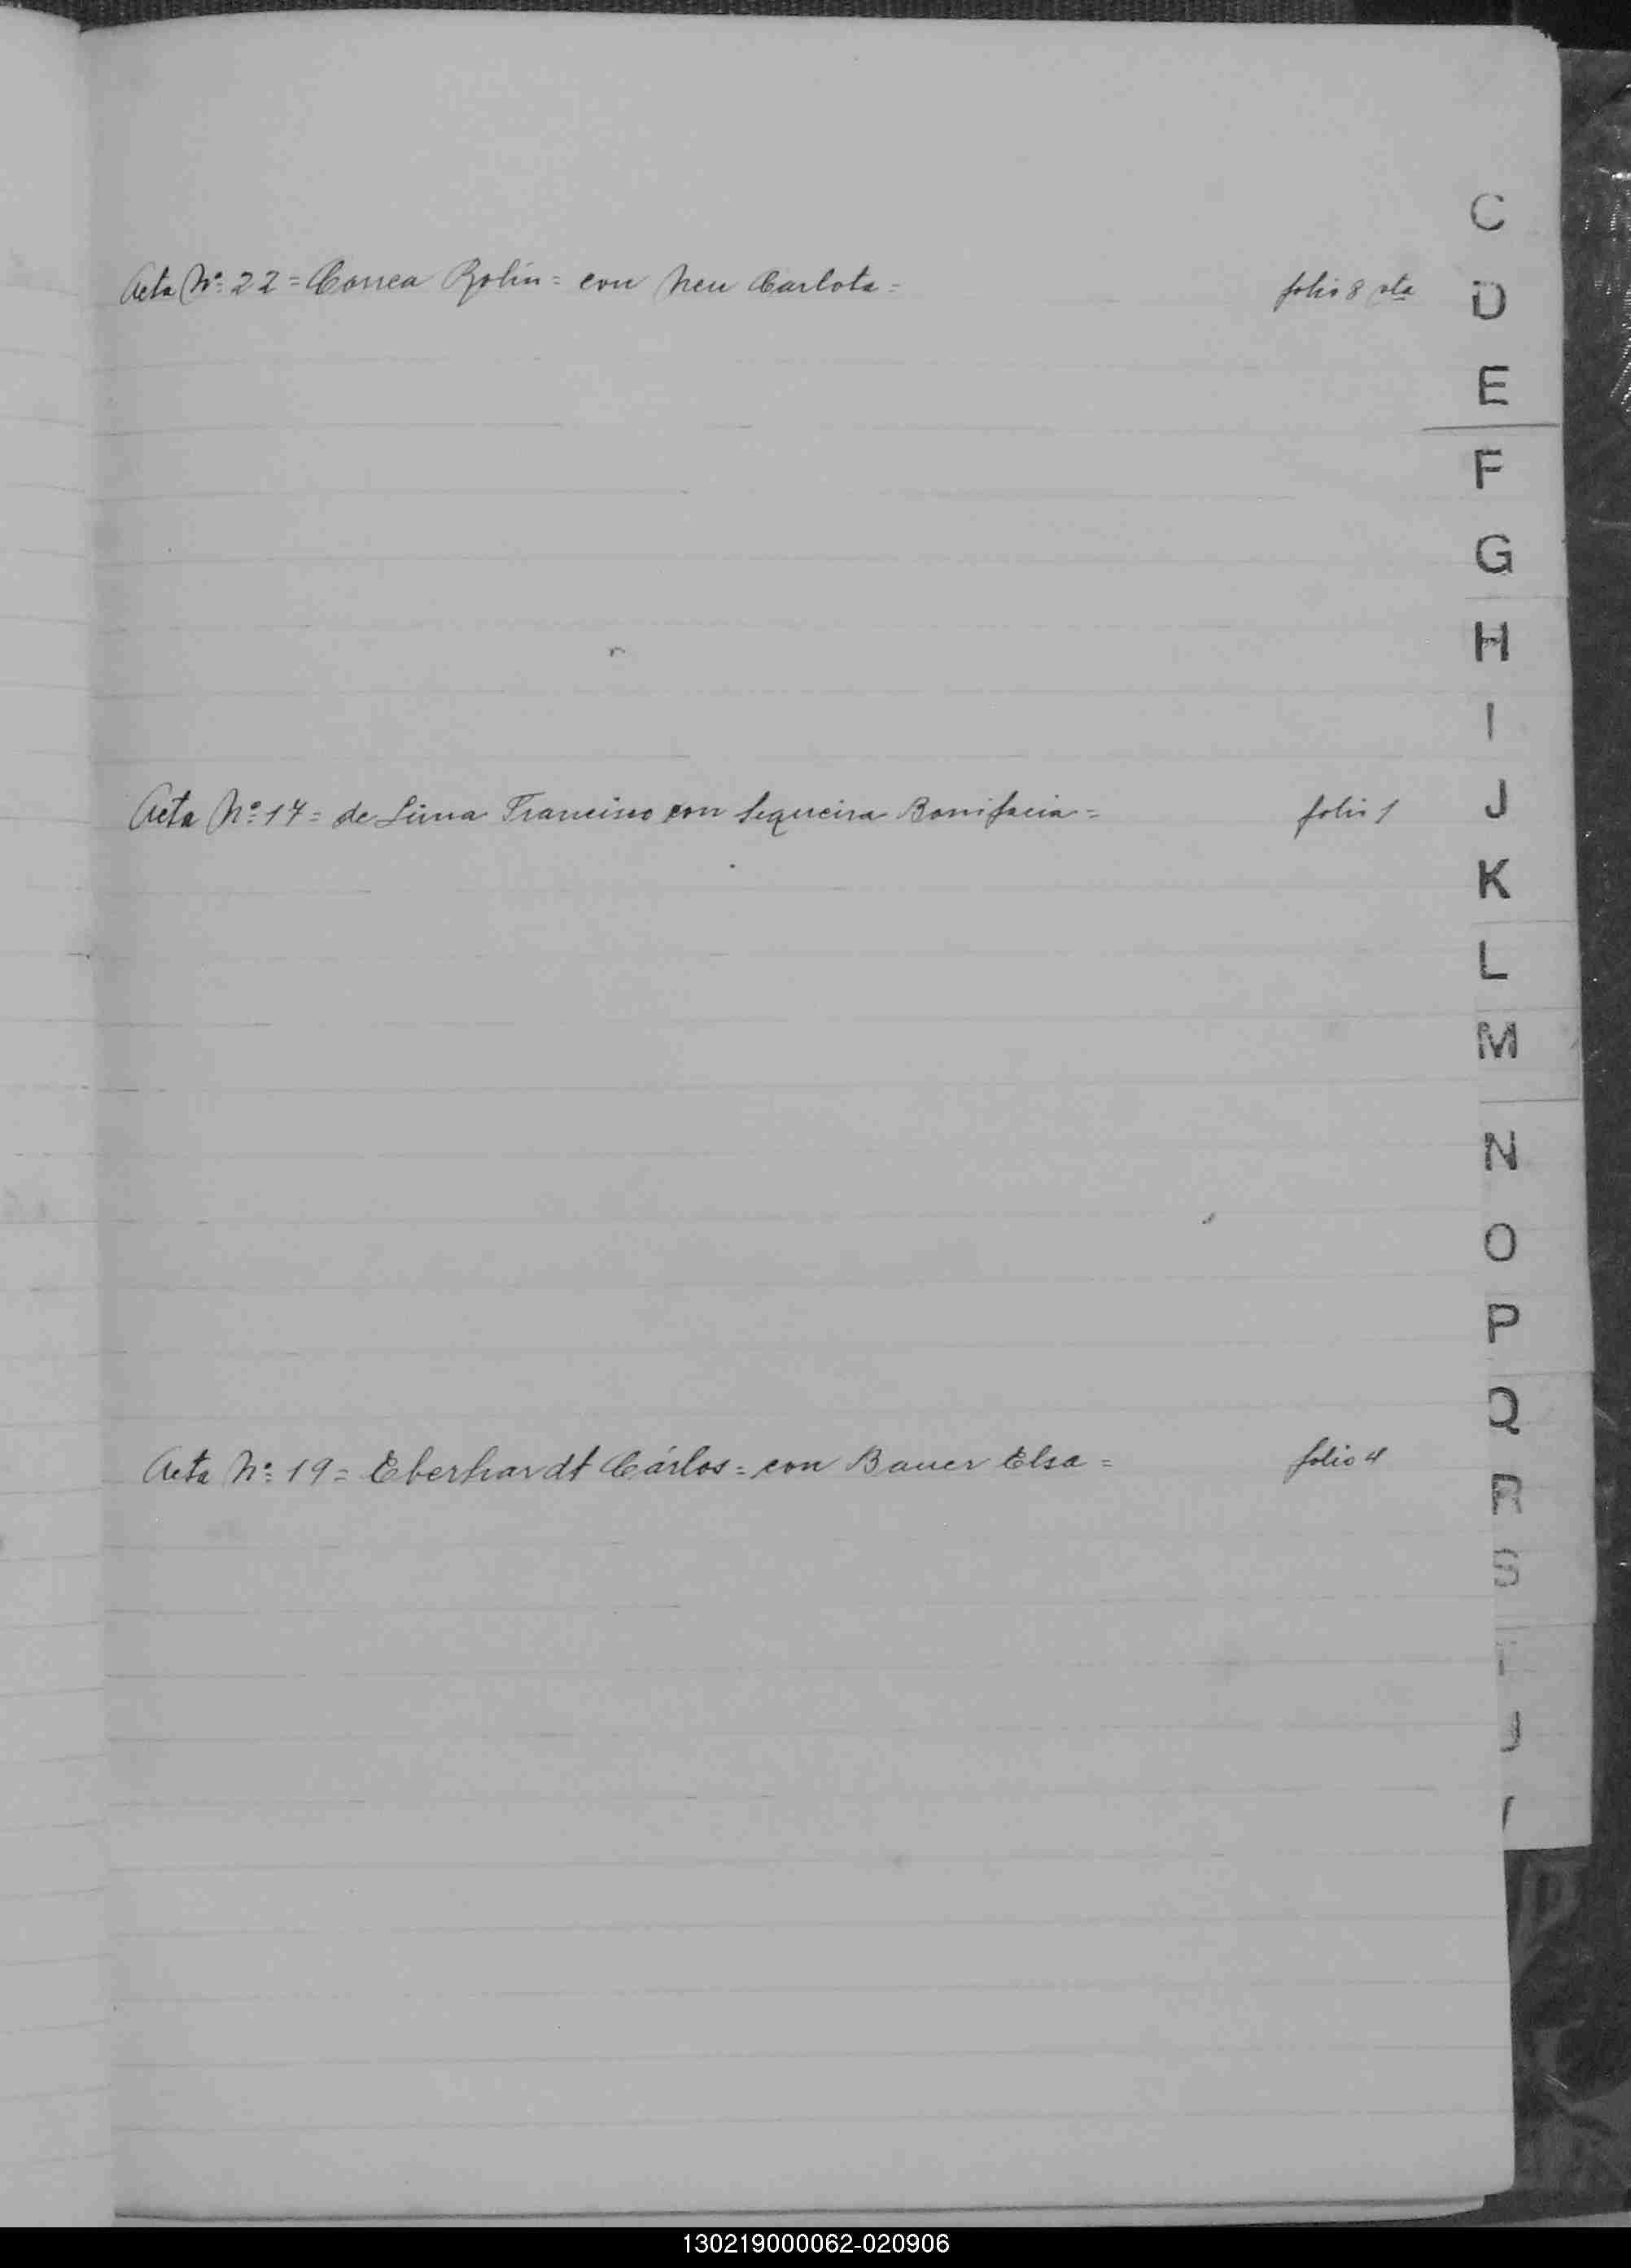 C
Acta Nº 22 = Correa Rolín = con Neu Carlota = folio 8 vta
D
E
F
G
H
I
Acta Nº 17 = de Lima Francisco con Sequeira Bonifacia = folio 1
J
K
L
M
N
O
P
Q
Acta Nº 19 = Eberhardt Cárlos = con Bauer Elsa = folio 4
R
S
130219000062-020906